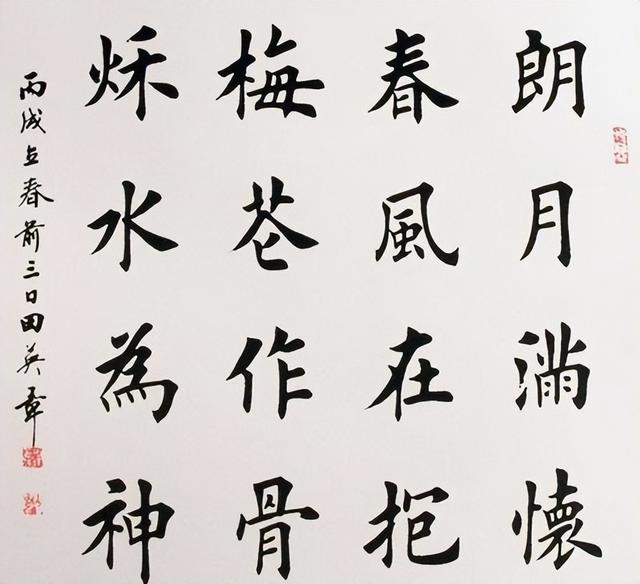 朗月滿懷
春風在抱
梅花作骨
秌水為神
丙戌立春前三日田英章